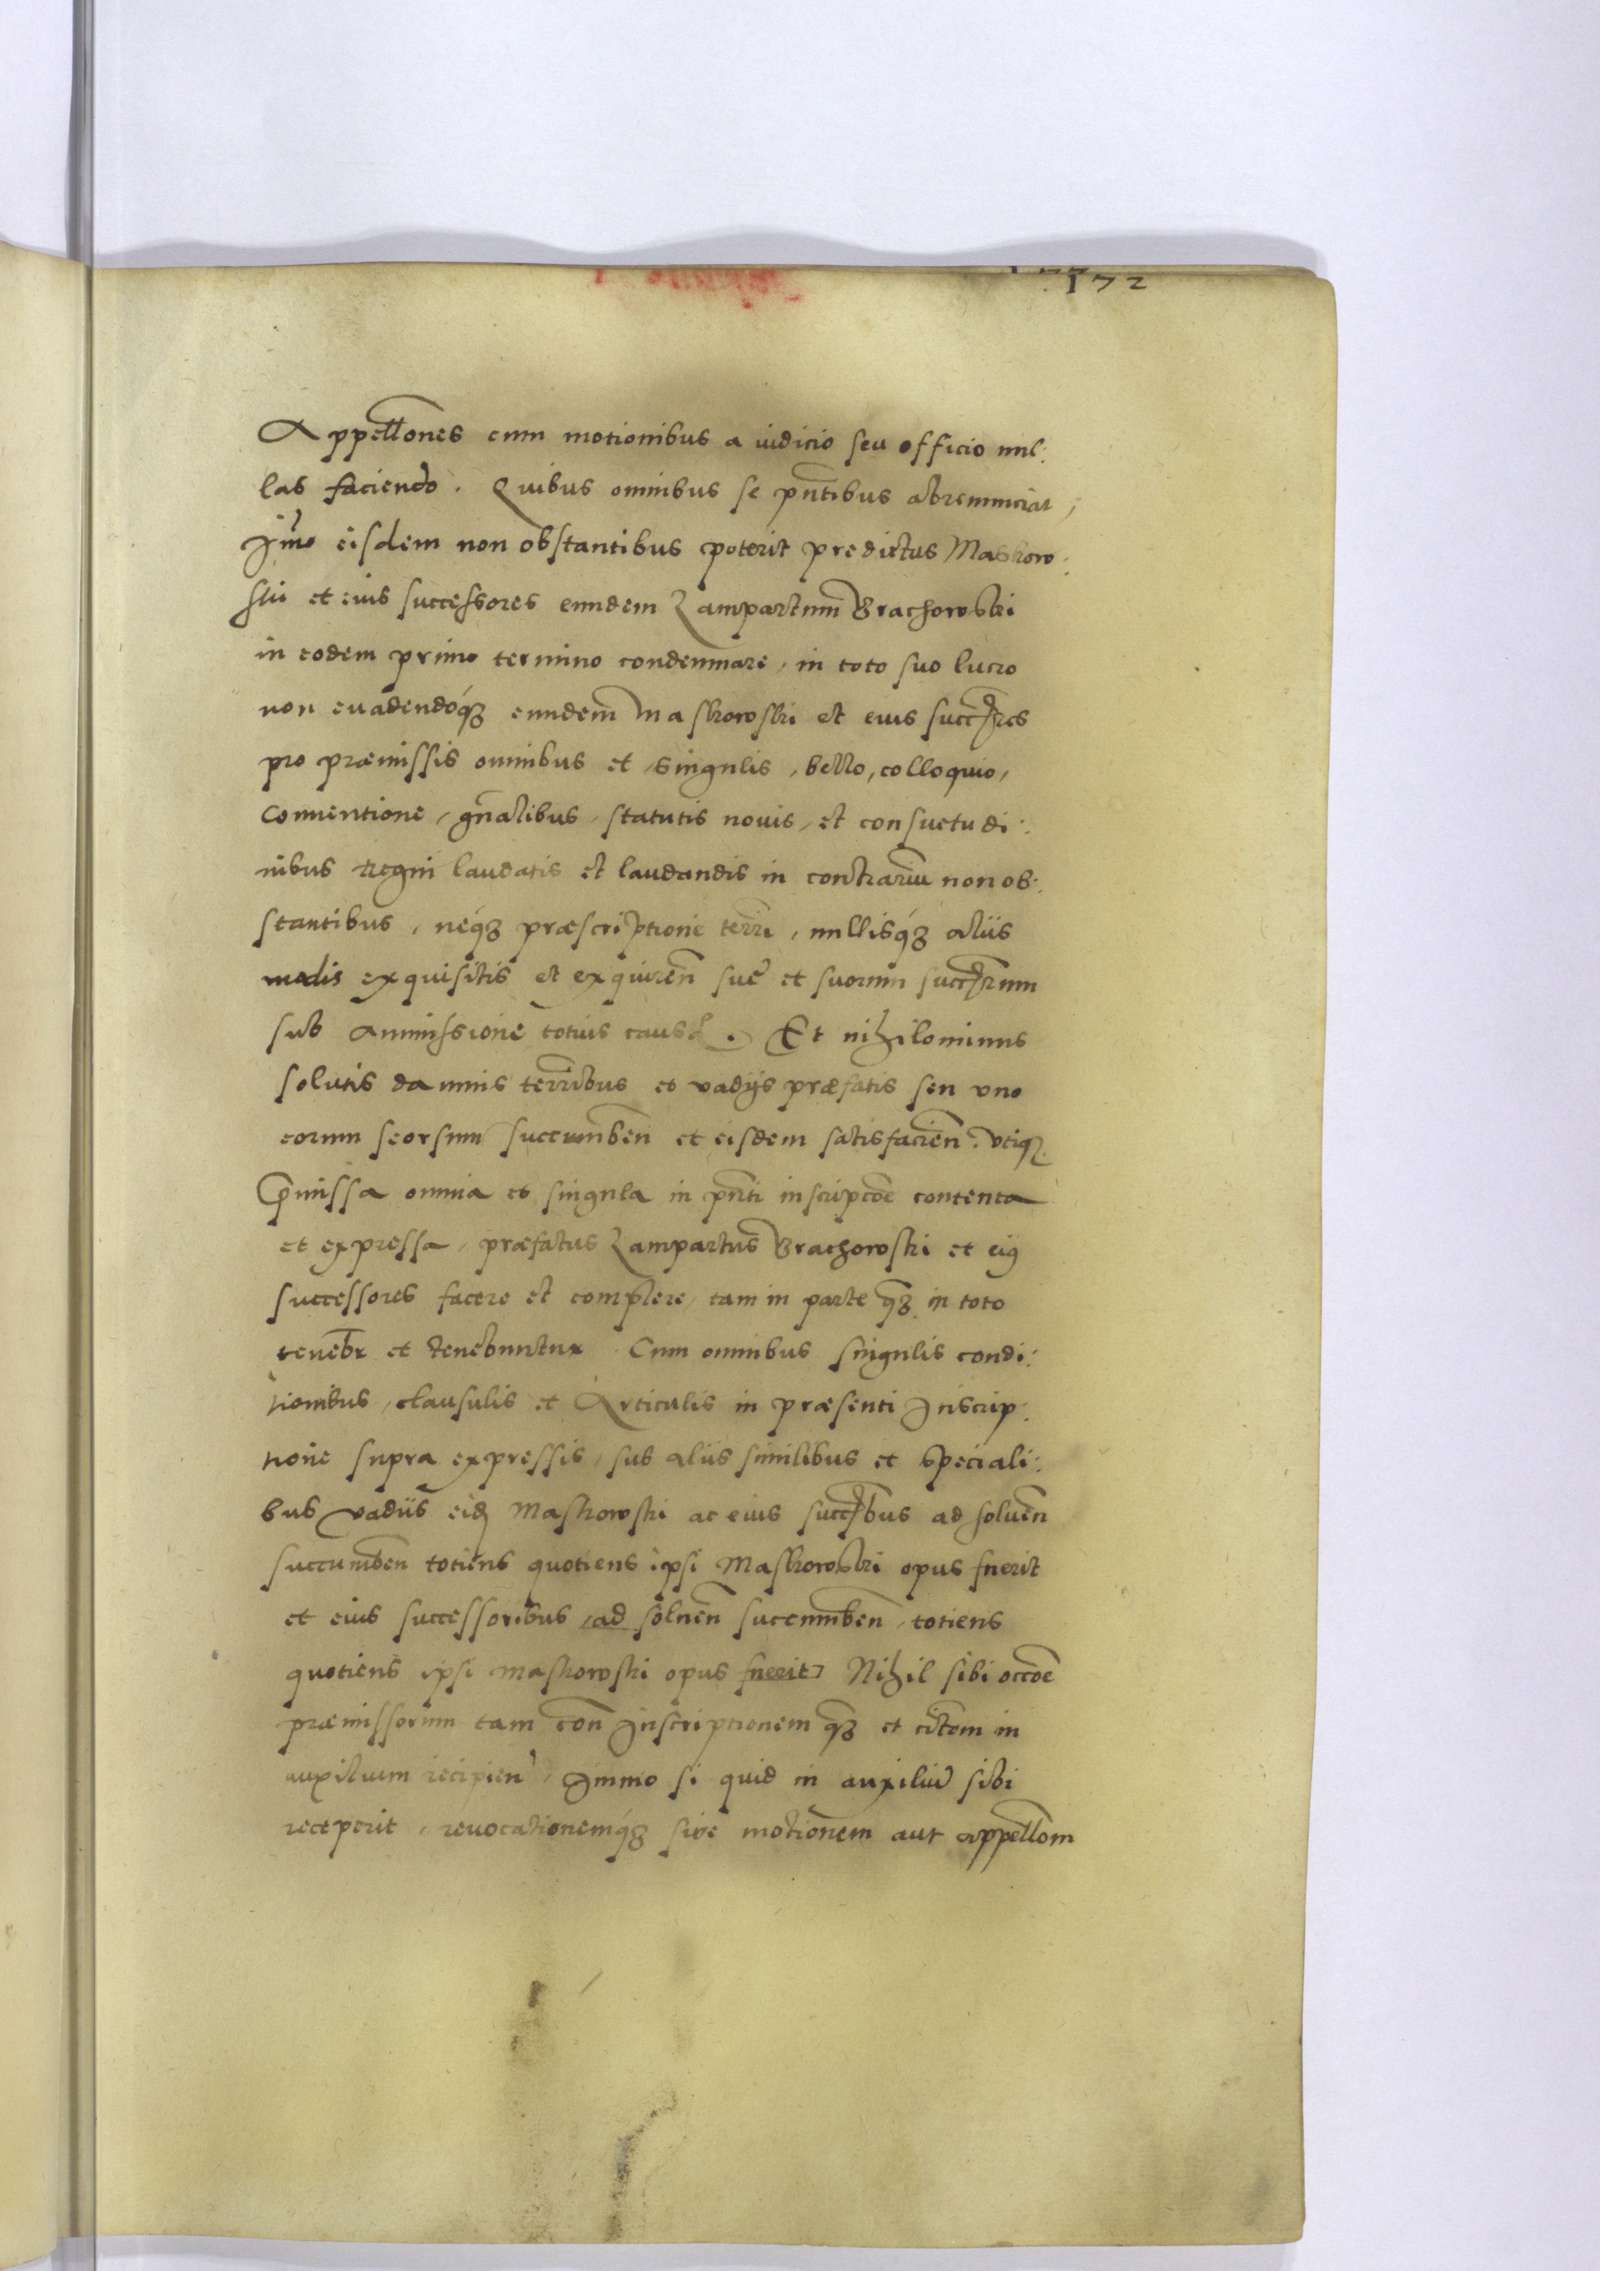 172
Appellones cum motionibus a iudicio seu officio nul:
las faciendo. Quibus omnibus se pntibus abrenunciat,
Imo eisdem non obstantibus poterit predictus Maskow:
ski et eius successores eundem Lampartum Brachowski
in eodem primo termino condemnare, in toto suo lucro
non euadendoq́ eundem Maskowski et eius succres
pro præmissis omnibus et singulis, bello, colloquio,
Conuentione, gnalibus, statutis nouis, et consuetudi:
nibus Regni laudatis et laudandis in contrarium non ob:
stantibus, neq́ præscriptione terri, nullisq́ aliis
modis exquisitis et exquiren sue et suorum succrum
sub ammissione totius causæ. Et nihilominus
solutis damnis terribus et vadijs præfatis seu vno
eorum seorsum succumben et eisdem satisfacien. vtiq
Pmissa omnia et singula in pnti inscripcoe contenta
et expressa, præfatus Lampartus Brachowski et eiꝰ
successores facere et complere, tam in parte qꝫ in toto
tenebr et tenebuntur Cum omnibus singulis condi:
tionibus, clausulis et Articulis in præsenti Inscrip:
tione supra expressis, sub aliis similibus et speciali:
bus vadiis eidꝫ Maskowski ac eius succbus ad soluen
succumben totiens quotiens ipsi Maskowski opus fuerit
et eius successoribus, ad soluen succumben, totiens
quotiens ipsi Maskowski opus fuerit] Nihil sibi occoe
præmissorum tam con Inscriptionem qꝫ et citom in
auxilium recipien, Immo si quid in auxiliū sibi
receperit, reuocationemq́ siue motionem aut appellom